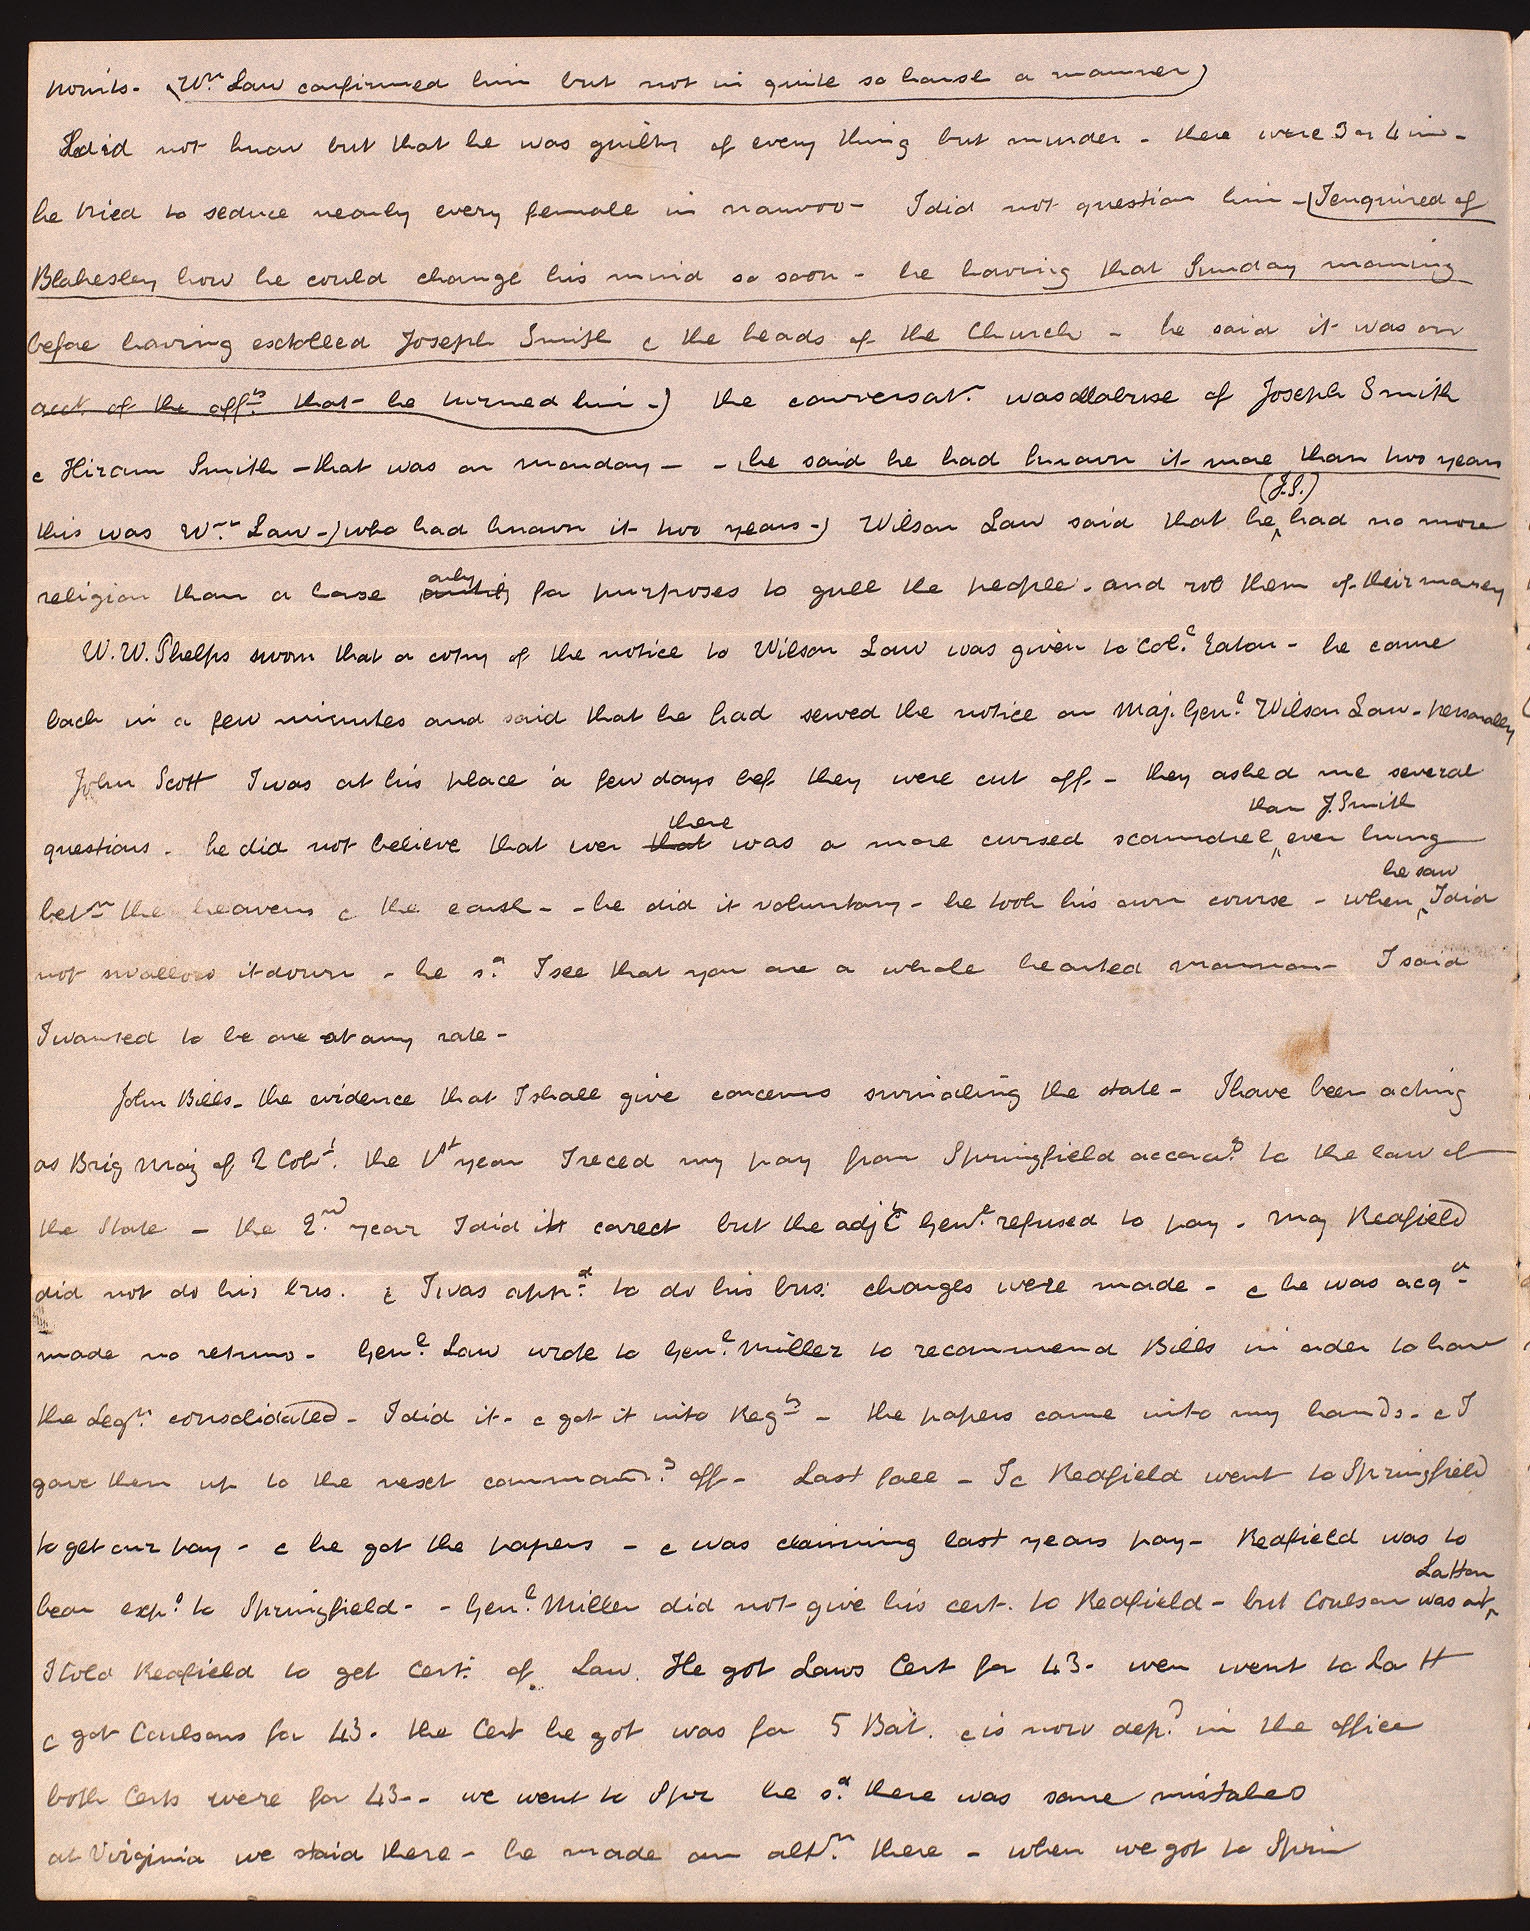 words - (Wm. Law confirmed him but not in quite so harsh a manner)
I did not know but that he was guilty of every thing but murder - there were 3 or 4 in -
he tried to seduce nearly every female in nauvoo - I did not question him - (I enquired of
Blakesley how he could change his mind so soon - he having that Sunday morning
before having extolled Joseph Smith & the heads of the Church - he said it was on
acct. of the affts. that he turned him -) the conversatn. was all abuse of Joseph Smith
& Hiram Smith - that was on monday - - he said he had known it more than two years
this was Wm. Law -) who had known it two years -) Wilson Law said that he (J.S.) had no more
religion than a horse only for purposes to gull the people - and rob them of their money
W. W. Phelps sworn that a copy of the notice to Wilson Law was given to Col. Eaton - he came
back in a few minutes and said that he had served the notice on Maj. Genl. Wilson Law - personally
John Scott I was at his place a few days bef they were cut off - they asked me several
questions - he did not believe that ever that there was a more cursed scoundrel than J. Smith ever hung
betn. the heavens & the earth - - he did it voluntary - he took his own course - when he saw I did
not swallow it down - he sd. I see that you are a whole hearted mormon - I said
I wanted to be one at any rate -
John Bills - the evidence that I shall give concerns swindling the state - I have been acting
as Brig Maj of 2 Coht. the 1st year I reced my pay from Springfield accordg. to the law of
the State - the 2nd. year I did it correct but the adjt Genl. refused to pay - Maj Redfield
did not do his bus. & I was appd. to do his bus: charges were made - & he was acqd.
made no returns - Genl. Law wrote to Genl. Miller to recommend Bills in order to have
the Legn. consolidated - I did it - & got it into Regts. - the papers came into my hands - & I
gave them up to the next commandg. off - Last fall - I & Redfield went to Springfield
to get our pay - & he got the papers - & was claiming last years pay - Redfield was to
bear exps. to Springfield - - Genl. Miller did not give his cert. to Redfield - but Coulson was at Lattan
I told Redfield to get Cert. of Law. He got Laws Cert for 43 - wen went to La H
& got Coulsons for 43 - the Cert he got was for 5 Bat. & is now depd. in the office
both Certs were for 43 - - we went to Spr he sd. there was some mistakes
at Virginia we staid there - he made an altn. there - when we got to Sprin